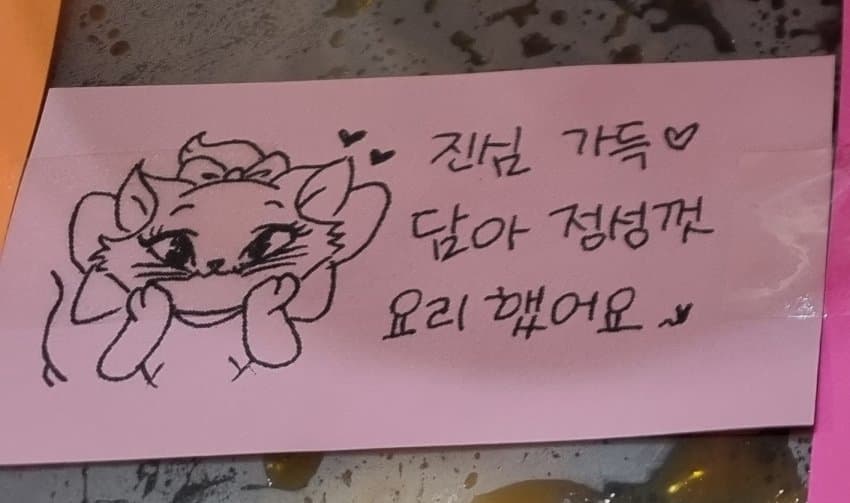 진심 가득♡
담아 정성껏
요리 했어요